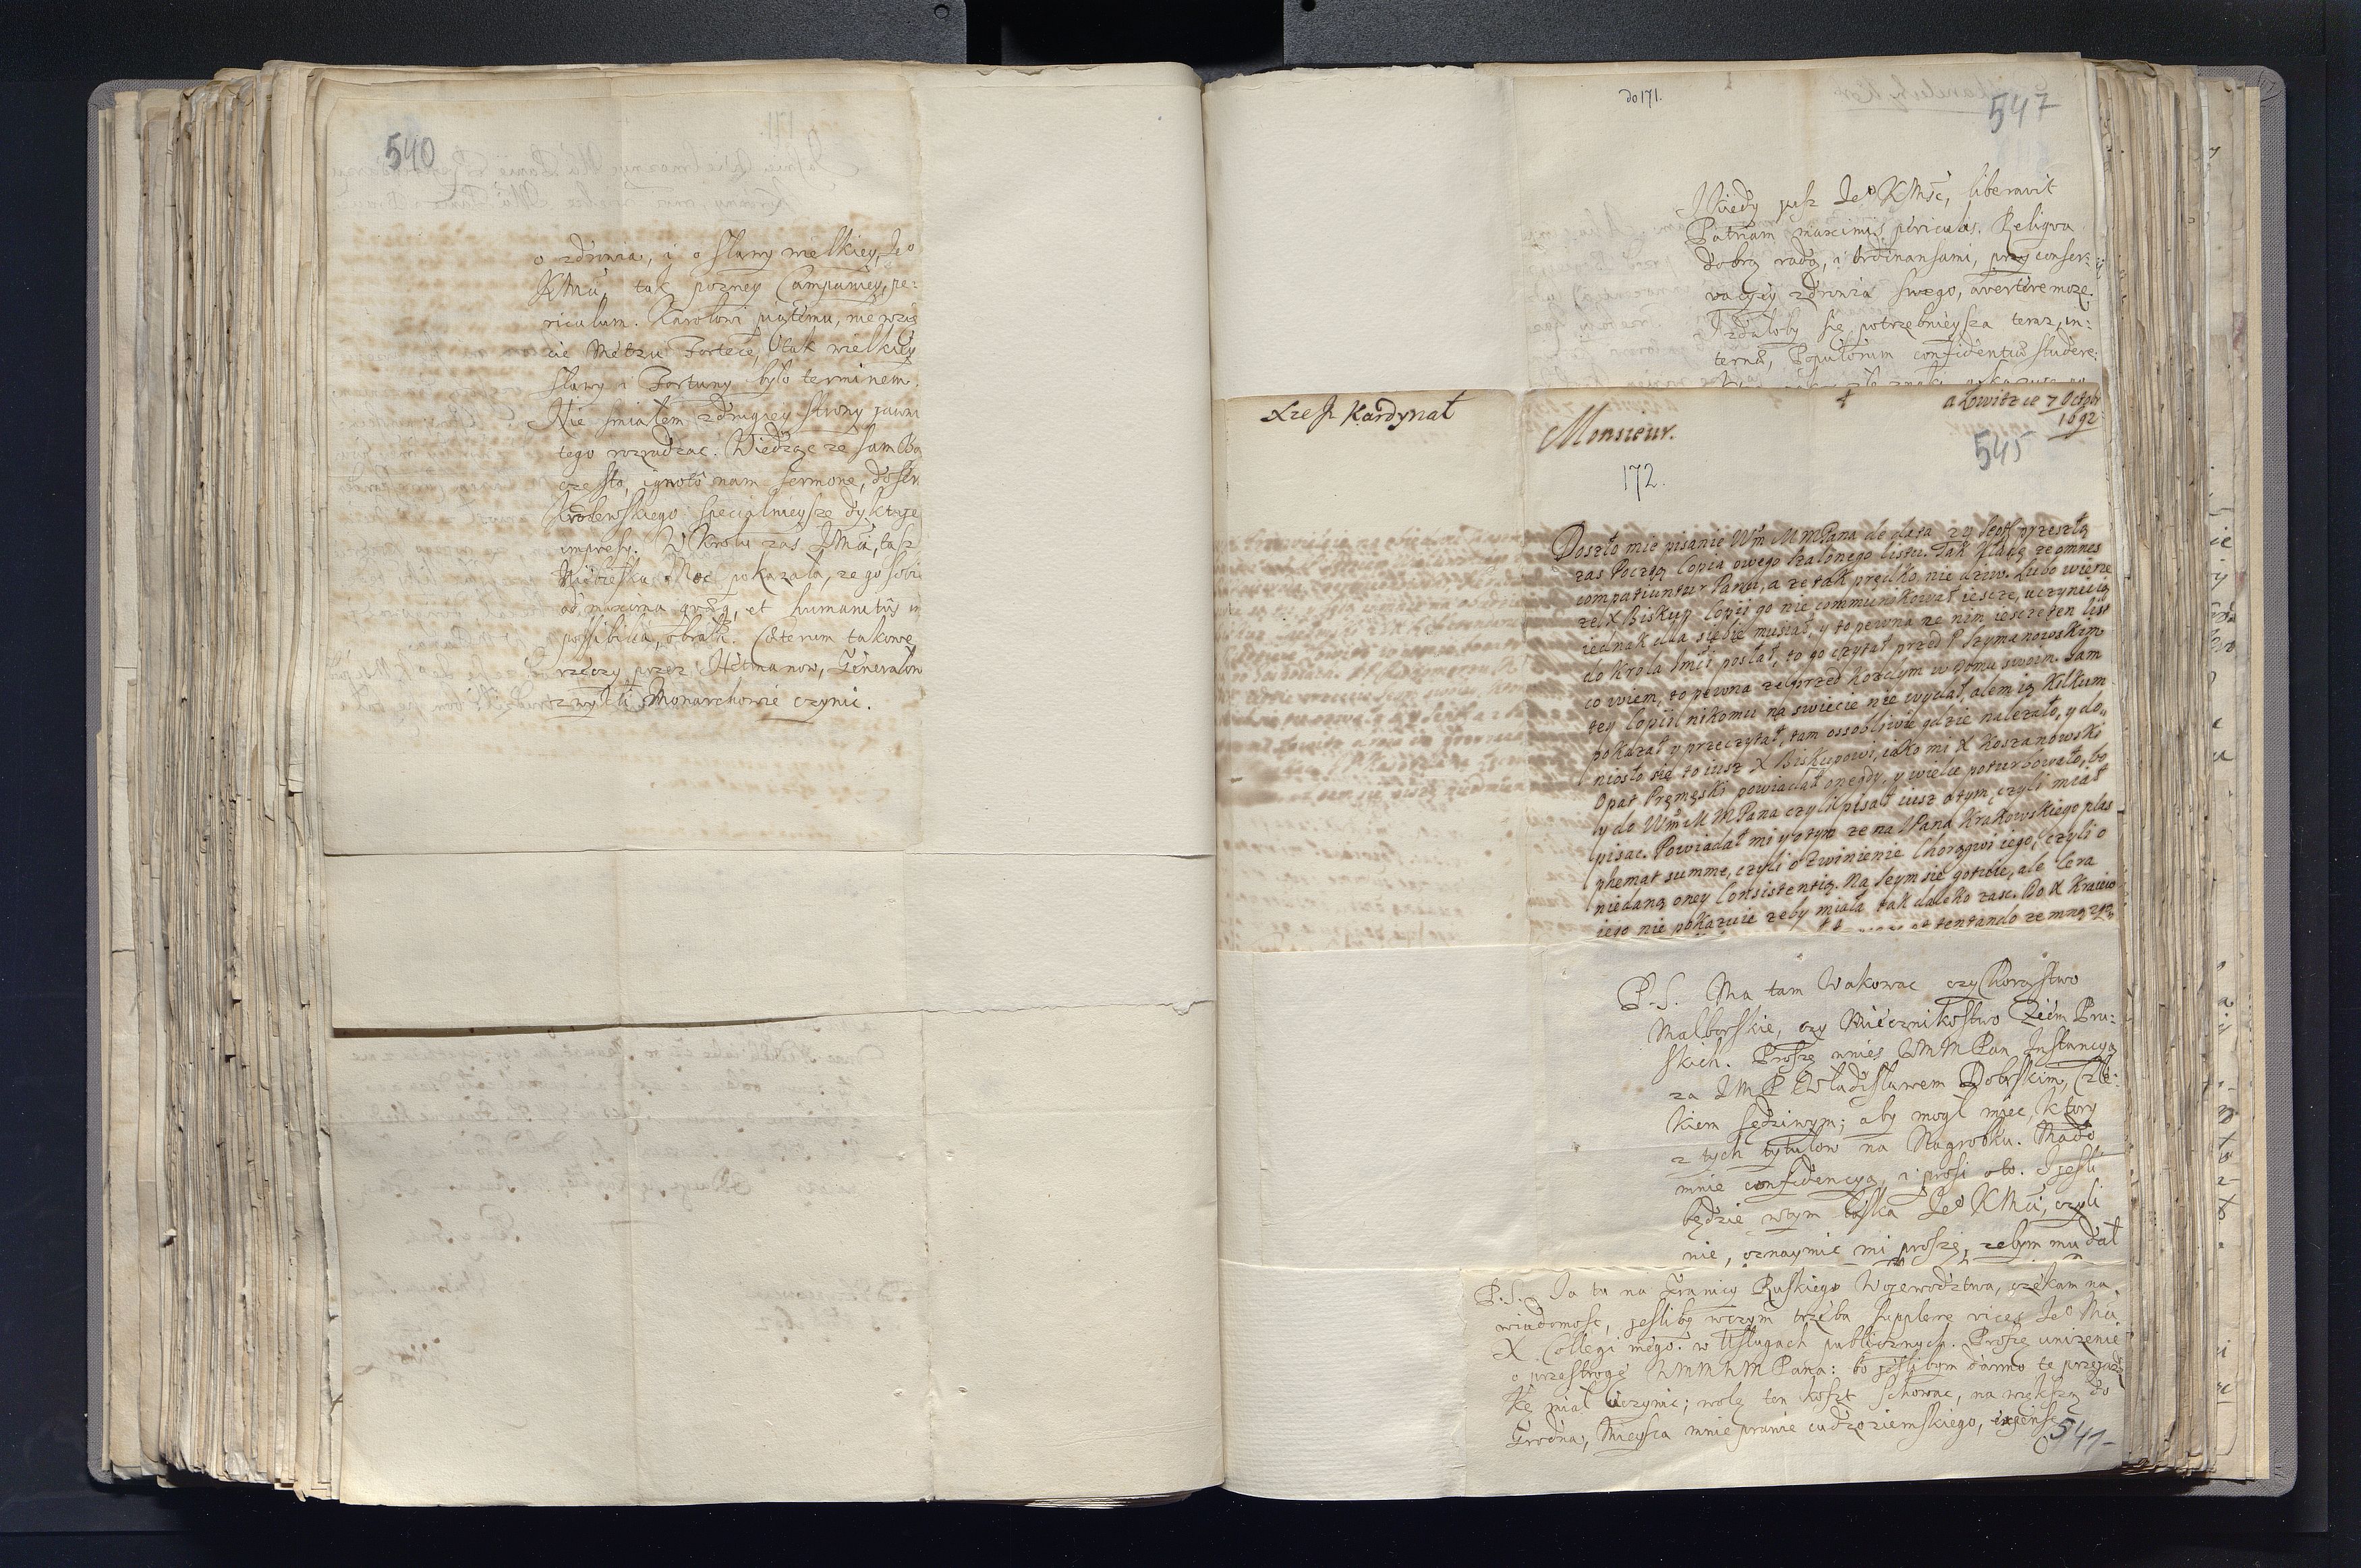 540
o zdrowia, i o sławy wielkiey, Je⁰
KMci, tak pozney Campaniey, pe:
riculum. Karolowi piątemu, nie wzię
cie Metzu Fortece, tak wielkiey
sławy i Fortuny było terminem.
Nie smiałem z drugiey strony
tego rozradzac. Wiedząc ze sam Bo
często, ignoto nam sermone, do ser
Krolewskiego specialnieysze dyktuje
impresy. W Krolu zas JMci, tasz
Boska Moc pokazała, ze go sobie
ad maxima
possibilia, obrała. Coeterum takowe
rzeczy przez Hetmanow, Generałow
zwykli Monarchowie czynic.
do 171.
547
Kiedy jusz Je⁰ KMsc, liberavit
Patriam maximis periculis. Religwa
dobrą radą, i ordinansami, przy conser:
vacyey zdrowia swego, avertere moze.
Zdałoby się potrzebnieysza teraz, in:
terna, Populorum confidentia studere:
Xze Jmc Kardynał
Monsieur.
a Łowitz ce 7 Octobr
1692
545
172.
Doszło mie pisanie Wm MMPana de data
zas Pocztą Copia owego szalonego listu. Tak kładę ze omnes
compatiuntur Panu, a ze tak prędko, nie dziw. Lubo wierze
ze X Biskup Copii go nie communikował iescze, uczynic ią
iednak dla siebie musiał, y to pewna ze nim iescze ten list
do Krola Jmci posłał, to go czytał przed P Szymanowskim
co wiem, to pewna ze przed kozdym w Domu swoim. Jam
tey Copii nikomu na swiecie nie wydał, alem ią kilkum
pokazał y przeczytał, tam ossobliwie gdzie nalezało, y do„
niosło się to iusz X Biskupowi, iako mi X Koszanowski
Opat Pręmęski powiadał onegdy, y wielce poturbowało, bo
y do Wm MMPana czyli pisał iusz o tym, czyli miał
pisac. Powiadał mi y o tym ze na JPana Krakowskiego blas
phemat summe, czyli o zwinienie Chorągwi iego, czyli o
niedaną oney Consistentią. Na Seym się gotuie, ale Cera
iego nie pokazuie zeby miała tak daleko zasc. Do X Kraiew
tentando ze mną
P.S. Ma tam Wakowac czy Chorąstwo
Malborskie, czy Miecznikostwo Ziem Pru:
skich. Proszę wnies WMMPan Instancyą
za JMP Władisławem Dobrskim, Czle:
kiem sędziwym; aby mogł miec, ktory
z tych tytułow na Nagrobku. Ma do
mnie confidencyą, i prosi o to. Jesli
będzie wtym łaska Je⁰ KMci, czyli
nie, oznaymic mi proszę, zebym mu dał
P.S. Ja tu na Granicy Ruskiego Wojewodztwa, czekam na
wiadomosc, jesliby wczym trzeba supplere vices Je⁰ Mci
X Collegi mego w Usługach publicznych. Proszę unizenie
o przestrogę WMMMPana: bo jeslibym darmo te przejazd
kę miał uczynic; wolę ten koszt schowac, na większą do
Grodna, Mieysca mnie prawie cudzoziemskiego, expense
541